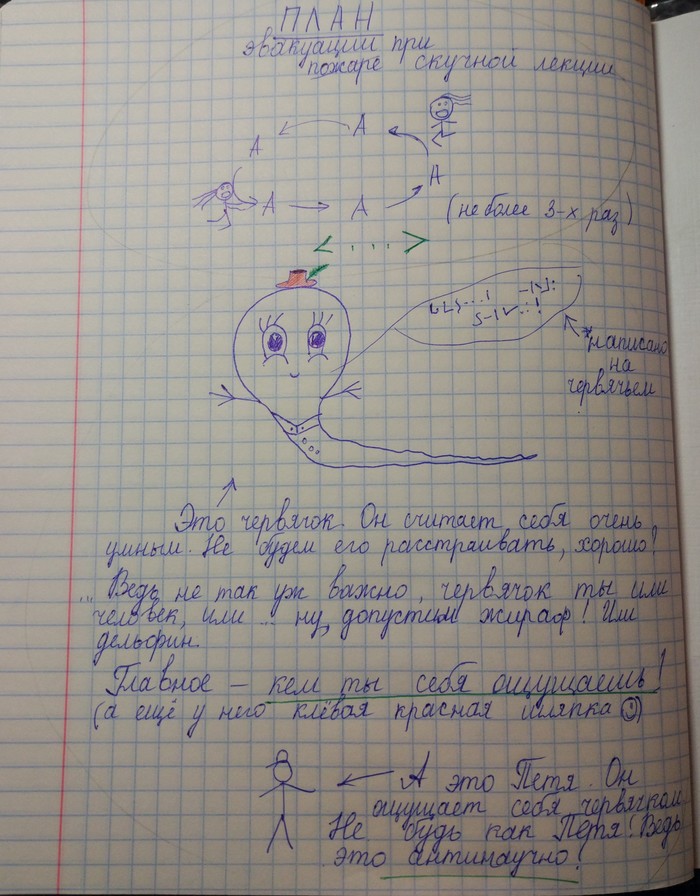 ПЛАН
эвакуации при
пожаре скучной лекции
А
А
А
А
А
(не более 3-х раз)
*написано
на
червячьем
Это червячок. Он считает себя очень
умным. Не будем его расстраивать, хорошо!
... Ведь не так уж важно, червячок ты или
человек, или ... ну, допустим жираф! Или
дельфин.
Главное – кем ты себя ощущаешь!
(а ещё у него клёвая красная шляпка ☺)
А это Петя. Он
ощущает себя червячком.
Не будь как Петя! Ведь
это антинаучно!